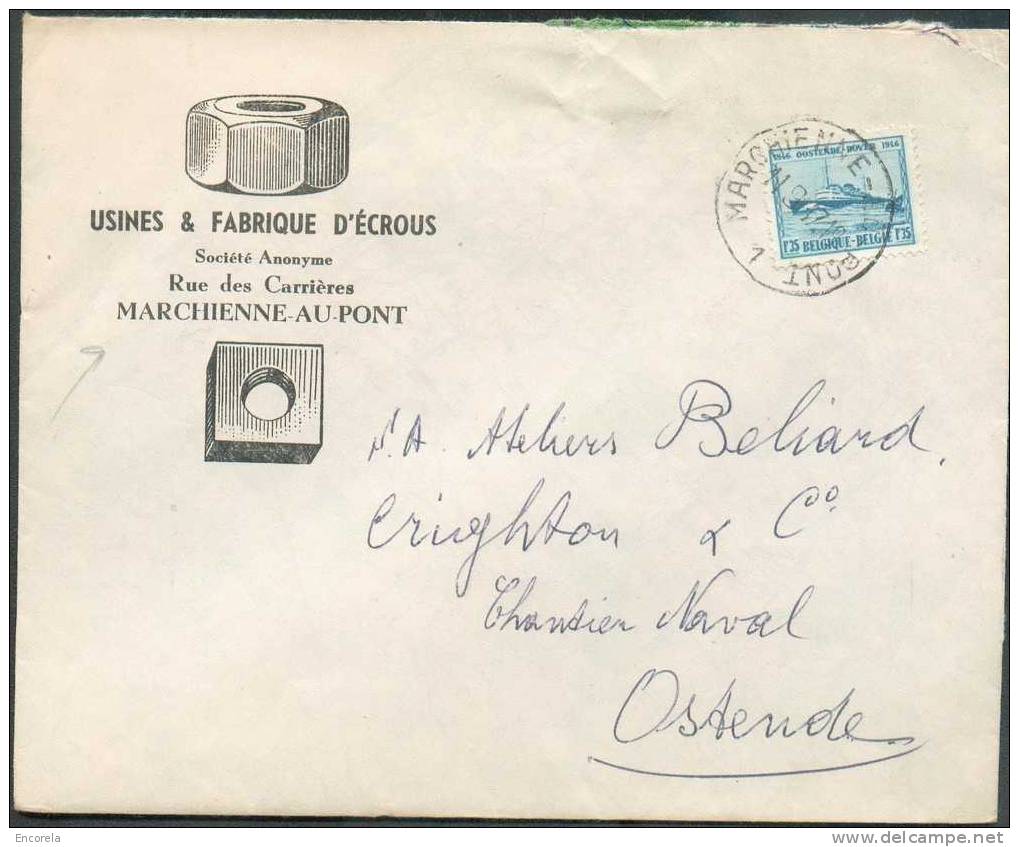 USINES & FABRIQUE D'ÉCROUS
Société Anonyme
Rue des Carrières
MARCHIENNE-AU-PONT
1846 OOSTENDE-DOVER 1946
1F35 BELGIQUE-BELGIË 1F35
MARCHIENNE-AU-PONT
1
S.A. Ateliers Beliard,
Crighton & Co
Chantier Naval
Ostende
Encorela
www.delcampe.net